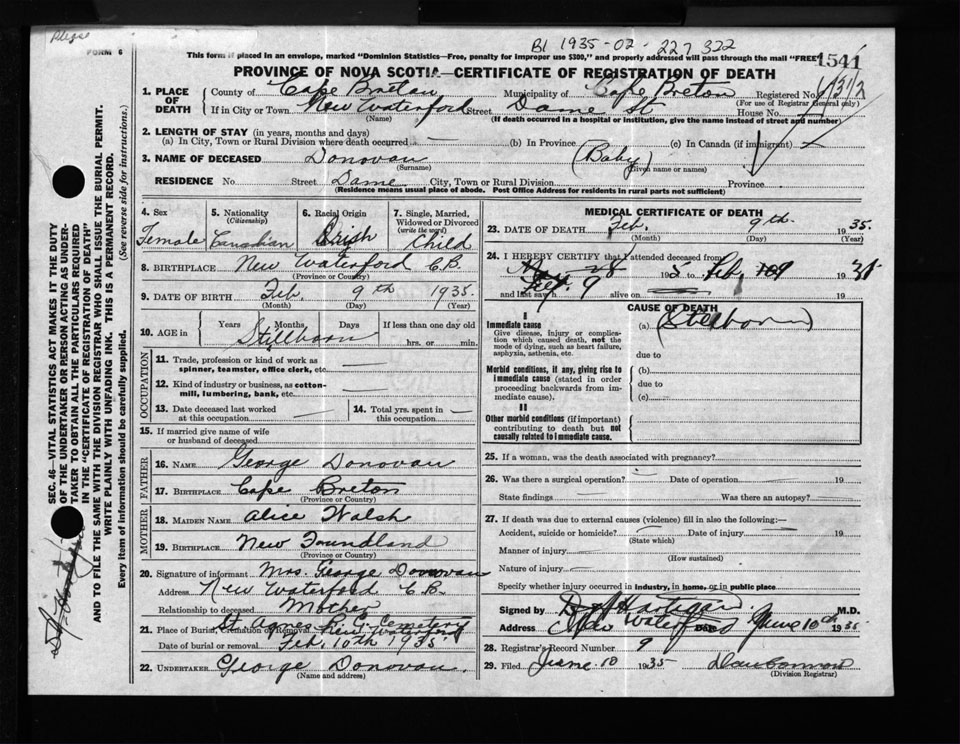 Please
FORM 6
B1 1935-02-227322
This form if placed in an envelope, marked "Dominion Statistics—Free, penalty for improper use $300," and properly addressed will pass through the mail "FREE"
1541
PROVINCE OF NOVA SCOTIA—CERTIFICATE OF REGISTRATION OF DEATH
1. PLACE OF DEATH County of Cape Breton Municipality of Cape Breton Registered No.
(For use of Registrar General only)
If in City or Town New Waterford Street Dame St House No.
(Name) (If death occurred in a hospital or institution, give the name instead of street and number)
2. LENGTH OF STAY (in years, months and days)
(a) In City, Town or Rural Division where death occurred — (b) In Province (c) In Canada (if immigrant)
3. NAME OF DECEASED Donovan (Baby)
(Surname) (Given name or names)
RESIDENCE No. Street Dame City, Town or Rural Division Province
(Residence means usual place of abode. Post Office Address for residents in rural parts not sufficient)
4. Sex Female
5. Nationality (Citizenship) Canadian
6. Racial Origin Irish
7. Single, Married, Widowed or Divorced (write the word) Child
8. BIRTHPLACE New Waterford C.B.
(Province or Country)
9. DATE OF BIRTH Feb. 9th 1935.
(Month) (Day) (Year)
10. AGE in Years Months Days If less than one day old
Stillborn hrs. or min.
OCCUPATION
11. Trade, profession or kind of work as spinner, teamster, office clerk, etc. —
12. Kind of industry or business, as cotton-mill, lumbering, bank, etc. —
13. Date deceased last worked at this occupation — 14. Total yrs. spent in this occupation —
15. If married give name of wife or husband of deceased
FATHER
16. NAME George Donovan
17. BIRTHPLACE Cape Breton
(Province or Country)
MOTHER
18. MAIDEN NAME Alice Walsh
19. BIRTHPLACE New Foundland
(Province or Country)
20. Signature of informant Mrs. George Donovan
Address New Waterford C.B.
Relationship to deceased Mother
21. Place of Burial, Cremation or Removal St Agnes R.C. Cemetery New Waterford
Date of burial or removal Feb. 10th 1935
22. UNDERTAKER George Donovan.
(Name and address)
MEDICAL CERTIFICATE OF DEATH
23. DATE OF DEATH Feb. 9th 1935.
(Month) (Day) (Year)
24. I HEREBY CERTIFY that I attended deceased from
Feb 9
and last saw h alive on 19
CAUSE OF DEATH
I
Immediate cause
Give disease, injury or complication which caused death, not the mode of dying, such as heart failure, asphyxia, asthenia, etc.
(a) (Stillborn)
due to
Morbid conditions, if any, giving rise to immediate cause (stated in order proceeding backwards from immediate cause).
(b)
due to
(c)
II
Other morbid conditions (if important) contributing to death but not causally related to immediate cause.
25. If a woman, was the death associated with pregnancy?
26. Was there a surgical operation? — Date of operation 19
State findings — Was there an autopsy? —
27. If death was due to external causes (violence) fill in also the following:—
Accident, suicide or homicide? Date of injury 19
(State which)
Manner of injury —
(How sustained)
Nature of injury —
Specify whether injury occurred in industry, in home, or in public place
Signed by D J Hartigan M.D.
Address New Waterford Date June 10th 1935
28. Registrar's Record Number 9
29. Filed June 10 1935
(Division Registrar)
SEC. 46—VITAL STATISTICS ACT MAKES IT THE DUTY OF THE UNDERTAKER OR PERSON ACTING AS UNDERTAKER TO OBTAIN ALL THE PARTICULARS REQUIRED IN THE "CERTIFICATE OF REGISTRATION OF DEATH" AND TO FILE THE SAME WITH THE DIVISION REGISTRAR WHO SHALL ISSUE THE BURIAL PERMIT.
WRITE PLAINLY WITH UNFADING INK. THIS IS A PERMANENT RECORD.
Every item of information should be carefully supplied. (See reverse side for instructions.)